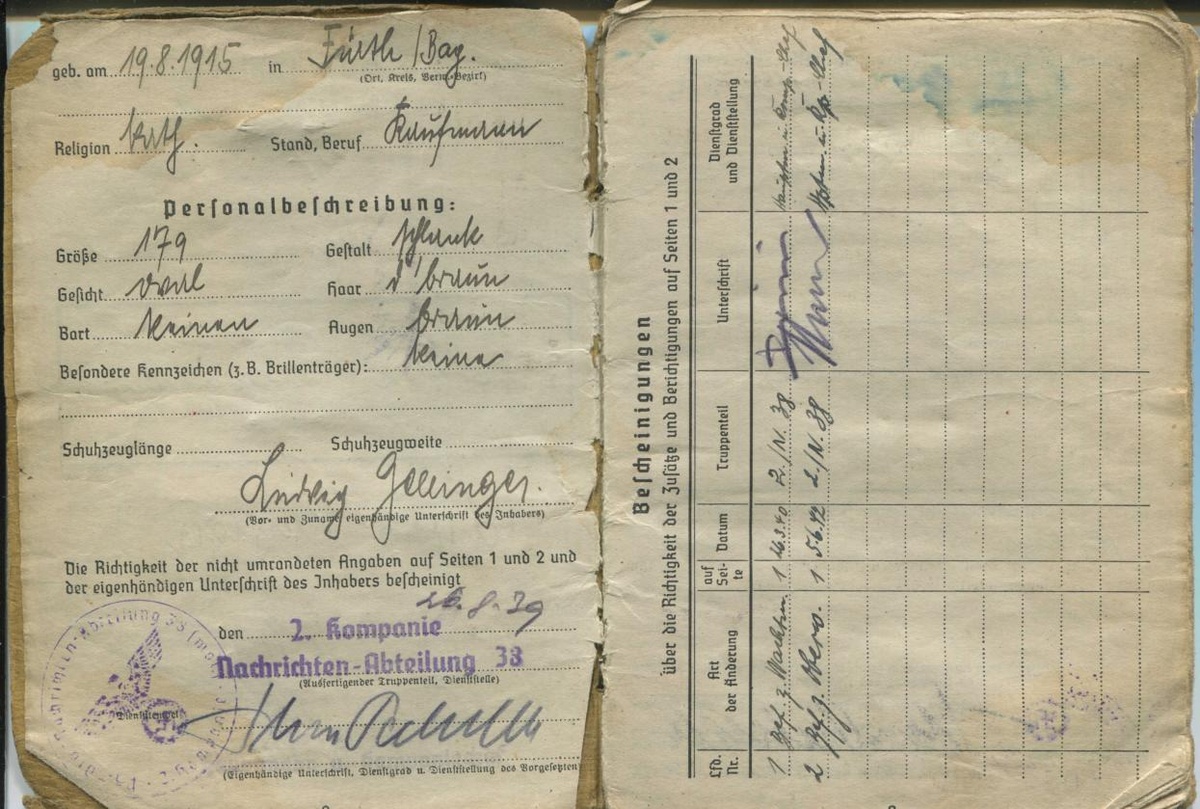 geb. am 19.8.1915 in Fürth/Bay.
(Ort, Kreis, Verw.-Bezirk)
Religion kath. Stand, Beruf Kaufmann
Personalbeschreibung:
Größe 179 Gestalt schlank
Gesicht oval Haar d'braun
Bart keinen Augen braun
Besondere Kennzeichen (z.B. Brillenträger): keine
Schuhzeuglänge Schuhzeugweite
Ludwig
(Vor- und Zuname, eigenhändige Unterschrift des Inhabers)
Die Richtigkeit der nicht umrandeten Angaben auf Seiten 1 und 2 und
der eigenhändigen Unterschrift des Inhabers bescheinigt
den 26.8.39
2. Kompanie
Nachrichten-Abteilung 38
(Ausfertigender Truppenteil, Dienststelle)
Nachrichten-Abteilung 38
Dienststempel
(Eigenhändige Unterschrift, Dienstgrad u. Dienststellung des Vorgesetzten
Bescheinigungen
über die Richtigkeit der Zusätze und Berichtigungen auf Seiten 1 und 2
Lfd. Nr. Art der Änderung auf Seite Datum Truppenteil Unterschrift Dienstgrad und Dienststellung
1 Bef. z. 1 16.3.40 2./N. 38 Hauptm. u. Komp.-Chef
2 Bef. z. 1 5.6.42 2./N. 38 Hptm. u. Kp.-Chef